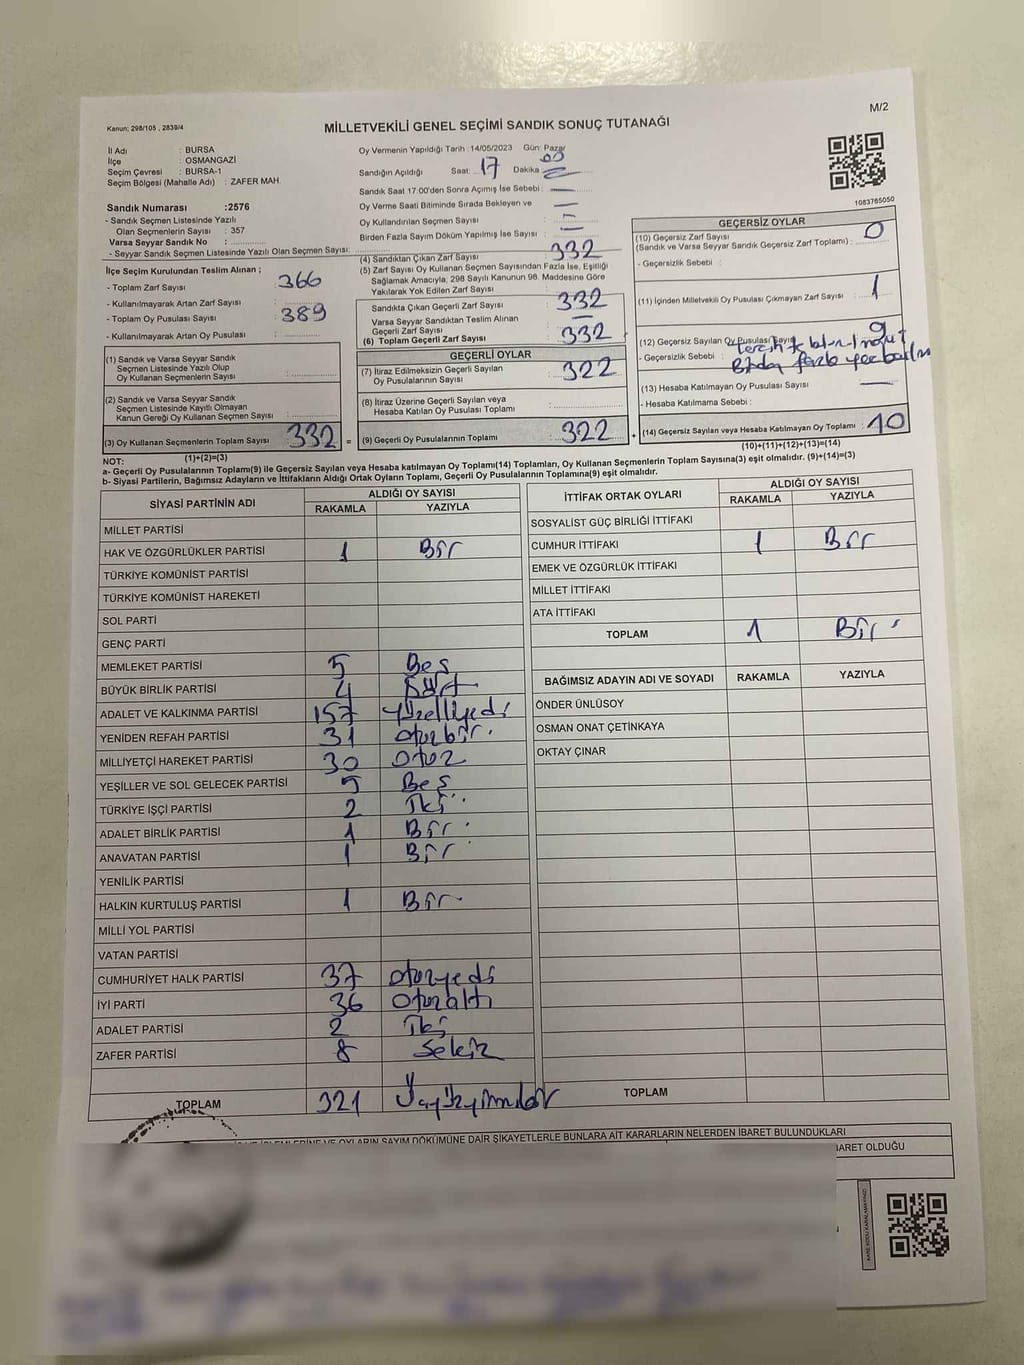 M/2
Kanun; 298/105 , 2839/4
MİLLETVEKİLİ GENEL SEÇİMİ SANDIK SONUÇ TUTANAĞI
İl Adı : BURSA
İlçe : OSMANGAZİ
Seçim Çevresi : BURSA-1
Seçim Bölgesi (Mahalle Adı) : ZAFER MAH.
Sandık Numarası :2576
- Sandık Seçmen Listesinde Yazılı
Olan Seçmenlerin Sayısı : 357
Varsa Seyyar Sandık No :
- Seyyar Sandık Seçmen Listesinde Yazılı Olan Seçmen Sayısı:
Oy Vermenin Yapıldığı Tarih :14/05/2023 Gün: Pazar
Sandığın Açıldığı Saat: 17 Dakika 00
Sandık Saat 17:00'den Sonra Açımış İse Sebebi : —
Oy Verme Saati Bitiminde Sırada Bekleyen ve
Oy Kullandırılan Seçmen Sayısı : —
Birden Fazla Sayım Döküm Yapılmış İse Sayısı : —
1083765050
İlçe Seçim Kurulundan Teslim Alınan ;
- Toplam Zarf Sayısı : 366
- Kullanılmayarak Artan Zarf Sayısı :
- Toplam Oy Pusulası Sayısı : 389
- Kullanılmayarak Artan Oy Pusulası :
(1) Sandık ve Varsa Seyyar Sandık
Seçmen Listesinde Yazılı Olup
Oy Kullanan Seçmenlerin Sayısı :
(2) Sandık ve Varsa Seyyar Sandık
Seçmen Listesinde Kayıtlı Olmayan
Kanun Gereği Oy Kullanan Seçmen Sayısı :
(3) Oy Kullanan Seçmenlerin Toplam Sayısı : 332 =
(1)+(2)=(3)
(4) Sandıktan Çıkan Zarf Sayısı : 332
(5) Zarf Sayısı Oy Kullanan Seçmen Sayısından Fazla İse, Eşitliği
Sağlamak Amacıyla, 298 Sayılı Kanunun 98. Maddesine Göre
Yakılarak Yok Edilen Zarf Sayısı :
Sandıkta Çıkan Geçerli Zarf Sayısı : 332
Varsa Seyyar Sandıktan Teslim Alınan
Geçerli Zarf Sayısı : —
(6) Toplam Geçerli Zarf Sayısı : 332
GEÇERLİ OYLAR
(7) İtiraz Edilmeksizin Geçerli Sayılan
Oy Pusulalarının Sayısı : 322
(8) İtiraz Üzerine Geçerli Sayılan veya
Hesaba Katılan Oy Pusulası Toplamı :
(9) Geçerli Oy Pusulalarının Toplamı : 322 +
GEÇERSİZ OYLAR
(10) Geçersiz Zarf Sayısı
(Sandık ve Varsa Seyyar Sandık Geçersiz Zarf Toplamı) : 0
- Geçersizlik Sebebi :
(11) İçinden Milletvekili Oy Pusulası Çıkmayan Zarf Sayısı : 1
(12) Geçersiz Sayılan Oy Pusulası Sayısı : 9
- Geçersizlik Sebebi :
(13) Hesaba Katılmayan Oy Pusulası Sayısı : —
- Hesaba Katılmama Sebebi :
(14) Geçersiz Sayılan veya Hesaba Katılmayan Oy Toplamı : 10
(10)+(11)+(12)+(13)=(14)
NOT:
a- Geçerli Oy Pusulalarının Toplamı(9) ile Geçersiz Sayılan veya Hesaba katılmayan Oy Toplamı(14) Toplamları, Oy Kullanan Seçmenlerin Toplam Sayısına(3) eşit olmalıdır. (9)+(14)=(3)
b- Siyasi Partilerin, Bağımsız Adayların ve İttifakların Aldığı Ortak Oyların Toplamı, Geçerli Oy Pusulalarının Toplamına(9) eşit olmalıdır.
SİYASİ PARTİNİN ADI ALDIĞI OY SAYISI
RAKAMLA YAZIYLA
MİLLET PARTİSİ
HAK VE ÖZGÜRLÜKLER PARTİSİ 1 Bir
TÜRKİYE KOMÜNİST PARTİSİ
TÜRKİYE KOMÜNİST HAREKETİ
SOL PARTİ
GENÇ PARTİ
MEMLEKET PARTİSİ 5 Beş
BÜYÜK BİRLİK PARTİSİ 4 Dört
ADALET VE KALKINMA PARTİSİ 157 Yüzelliyedi
YENİDEN REFAH PARTİSİ 31 Otuzbir.
MİLLİYETÇİ HAREKET PARTİSİ 30 Otuz
YEŞİLLER VE SOL GELECEK PARTİSİ 5 Beş
TÜRKİYE İŞÇİ PARTİSİ 2 İki
ADALET BİRLİK PARTİSİ 1 Bir
ANAVATAN PARTİSİ 1 Bir
YENİLİK PARTİSİ
HALKIN KURTULUŞ PARTİSİ 1 Bir
MİLLİ YOL PARTİSİ
VATAN PARTİSİ
CUMHURİYET HALK PARTİSİ 37 Otuzyedi
İYİ PARTİ 36 Otuzaltı
ADALET PARTİSİ 2 İki
ZAFER PARTİSİ 8 Sekiz
TOPLAM 321 Üçyüzyirmibir
İTTİFAK ORTAK OYLARI ALDIĞI OY SAYISI
RAKAMLA YAZIYLA
SOSYALİST GÜÇ BİRLİĞİ İTTİFAKI
CUMHUR İTTİFAKI 1 Bir
EMEK VE ÖZGÜRLÜK İTTİFAKI
MİLLET İTTİFAKI
ATA İTTİFAKI
TOPLAM 1 Bir
BAĞIMSIZ ADAYIN ADI VE SOYADI RAKAMLA YAZIYLA
ÖNDER ÜNLÜSOY
OSMAN ONAT ÇETİNKAYA
OKTAY ÇINAR
TOPLAM
İŞLEMLERİNE VE OYLARIN SAYIM DÖKÜMÜNE DAİR ŞİKAYETLERLE BUNLARA AİT KARARLARIN NELERDEN İBARET BULUNDUKLARI
BARET OLDUĞU
KARE KODU KARALAMAYINIZ